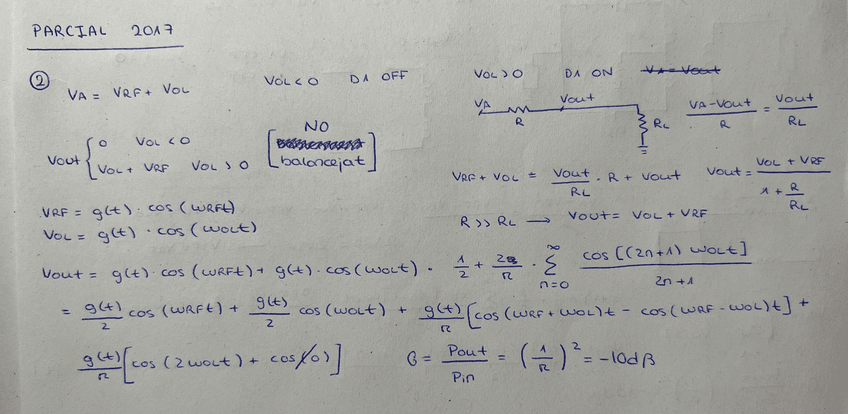 PARCIAL 2017
② VA = VRF + VOL VOL < 0 D1 OFF VOL > 0 D1 ON V1 = Vout
VA R Vout RL (VA - Vout)/R = Vout/RL
Vout { 0 VOL < 0
VOL + VRF VOL > 0
[NO balancejat]
VRF + VOL = Vout/RL · R + Vout Vout = (VOL + VRF)/(1 + R/RL)
VRF = g(t) · cos(ωRFt)
VOL = g(t) · cos(ωOLt)
R >> RL → Vout = VOL + VRF
Vout = g(t) · cos(ωRFt) + g(t) · cos(ωOLt) · 1/2 + 2/π · ∑ n=0 ∞ cos[(2n+1) ωOLt]/(2n+1)
= g(t)/2 cos(ωRFt) + g(t)/2 cos(ωOLt) + g(t)/π [cos(ωRF + ωOL)t - cos(ωRF - ωOL)t] +
g(t)/π [cos(2ωOLt) + cos(0)] G = Pout/Pin = (1/π)² = -10dB